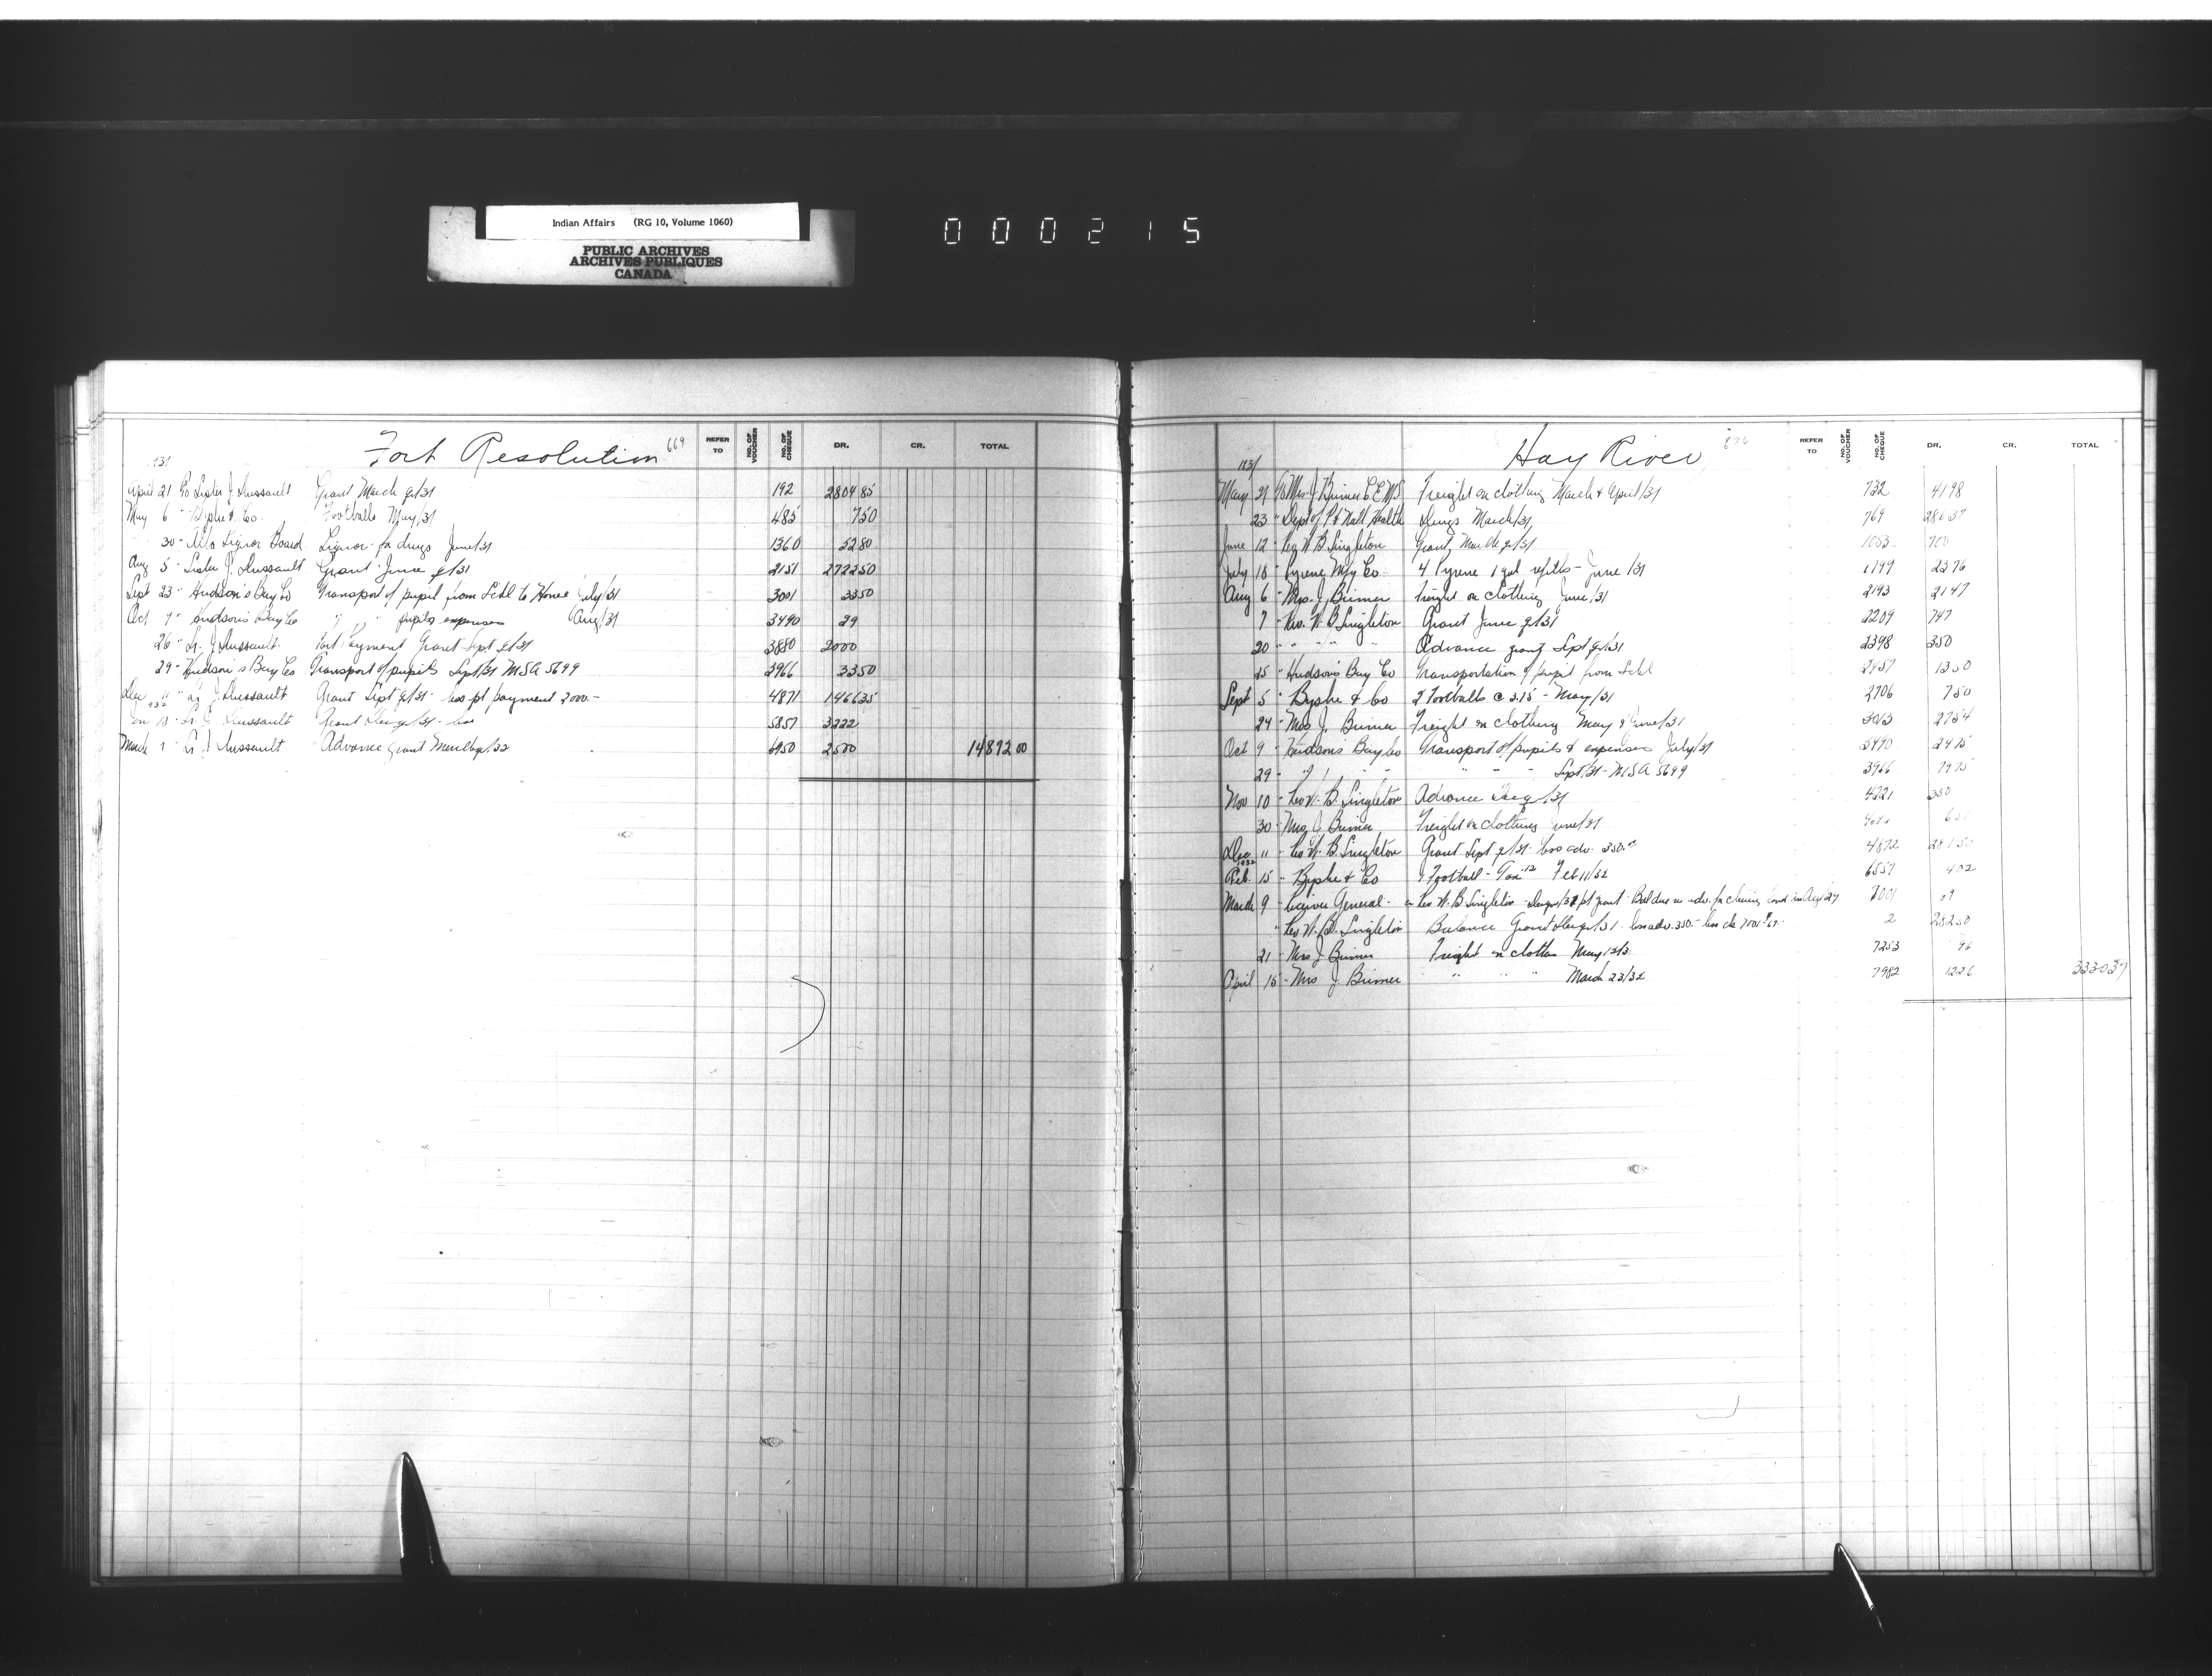 Indian Affairs (RG 10, Volume 1060)
PUBLIC ARCHIVES
ARCHIVES PUBLIQUES
CANADA
000215
Fort Resolution 669
REFER TO NO. OF VOUCHER NO. OF CHEQUE DR. CR. TOTAL
April 21 To Sister J. Dussault Grant March qr/31 192 2804 85
May 6 " Byshe & Co. Footballs May/31 485 7 50
30 " Alta Liquor Board Liquor for drugs June/31 1360 52 80
Aug 5 " Sister J. Dussault Grant June qr/31 2151 2722 50
Sept 23 " Hudson's Bay Co Transport of pupil from Schl to Home July/31 3001 33 50
Oct 9 " Hudson's Bay Co " " pupils expenses Aug/31 3490 29
26 " Sr. J. Dussault Part Payment Grant Sept qr/31 3880 2000
29 " Hudson's Bay Co Transport of pupils Sept/31 MSA 5699 3966 33 50
Dec 11 " Sr J. Dussault Grant Sept qr/31 - less pt payment 2000.- 4871 1466 35
1932
Sr. J. Dussault Grant Dec qr/31 - 5857 3222
March 1 " Sr J Dussault Advance Grant March qr/32 6950 2500 14872 00
Hay River
REFER TO NO. OF VOUCHER NO. OF CHEQUE DR. CR. TOTAL
1931
May 21 To Mrs. J. Bremer C.E.M.S. Freight on clothing March & April/31 732 41 98
23 " Dept of P & Natl Health Drugs March/31 769 286 37
June 12 " Rev W B Singleton Grant March qr/31 1053 700
July 18 " Pyrene Mfg Co 4 Pyrene 1 gal refills - June/31 1799 23 76
Aug 6 " Mrs. J. Bremer Freight on clothing June/31 2193 21 47
7 " Rev. W. B Singleton Grant June qr/31 2209 747
20 " " " " Advance grant Sept qr/31 2398 350
25 " Hudson's Bay Co Transportation of pupil from Schl 2457 13 50
Sept 5 " Byshe & Co 2 Footballs @ 3.75 - May/31 2706 7 50
24 " Mrs J. Bremer Freight on clothing May & June/31 3013 27 54
Oct 9 " Hudson's Bay Co Transport of pupils & expenses July/31 3490 24 75
29 " " " " " " " Sept/31 - MSA 5699 3966 79 75
Nov 10 " Rev W. B. Singleton Advance Dec qr/31 4221 350
30 " Mrs J Bremer Freight on clothing June/31
Dec 11 " Rev W. B. Singleton Grant Sept qr/31 - less adv. 350.- 4872
1932
Feb. 15 " Byshe & Co 1 Football - Tax 12 Feb 11/32 6557 4 02
March 9 " Receiver General - re Rev W. B Singleton 7001 69
" Rev W. B. Singleton Balance Grant Dec qr/31 less adv. 350.- less ck 7001 2 282 50
21 " Mrs J Bremer Freight on clothes 7253 96
April 15 " Mrs J. Bremer " " " March 23/32 7982 12 26 3330 37